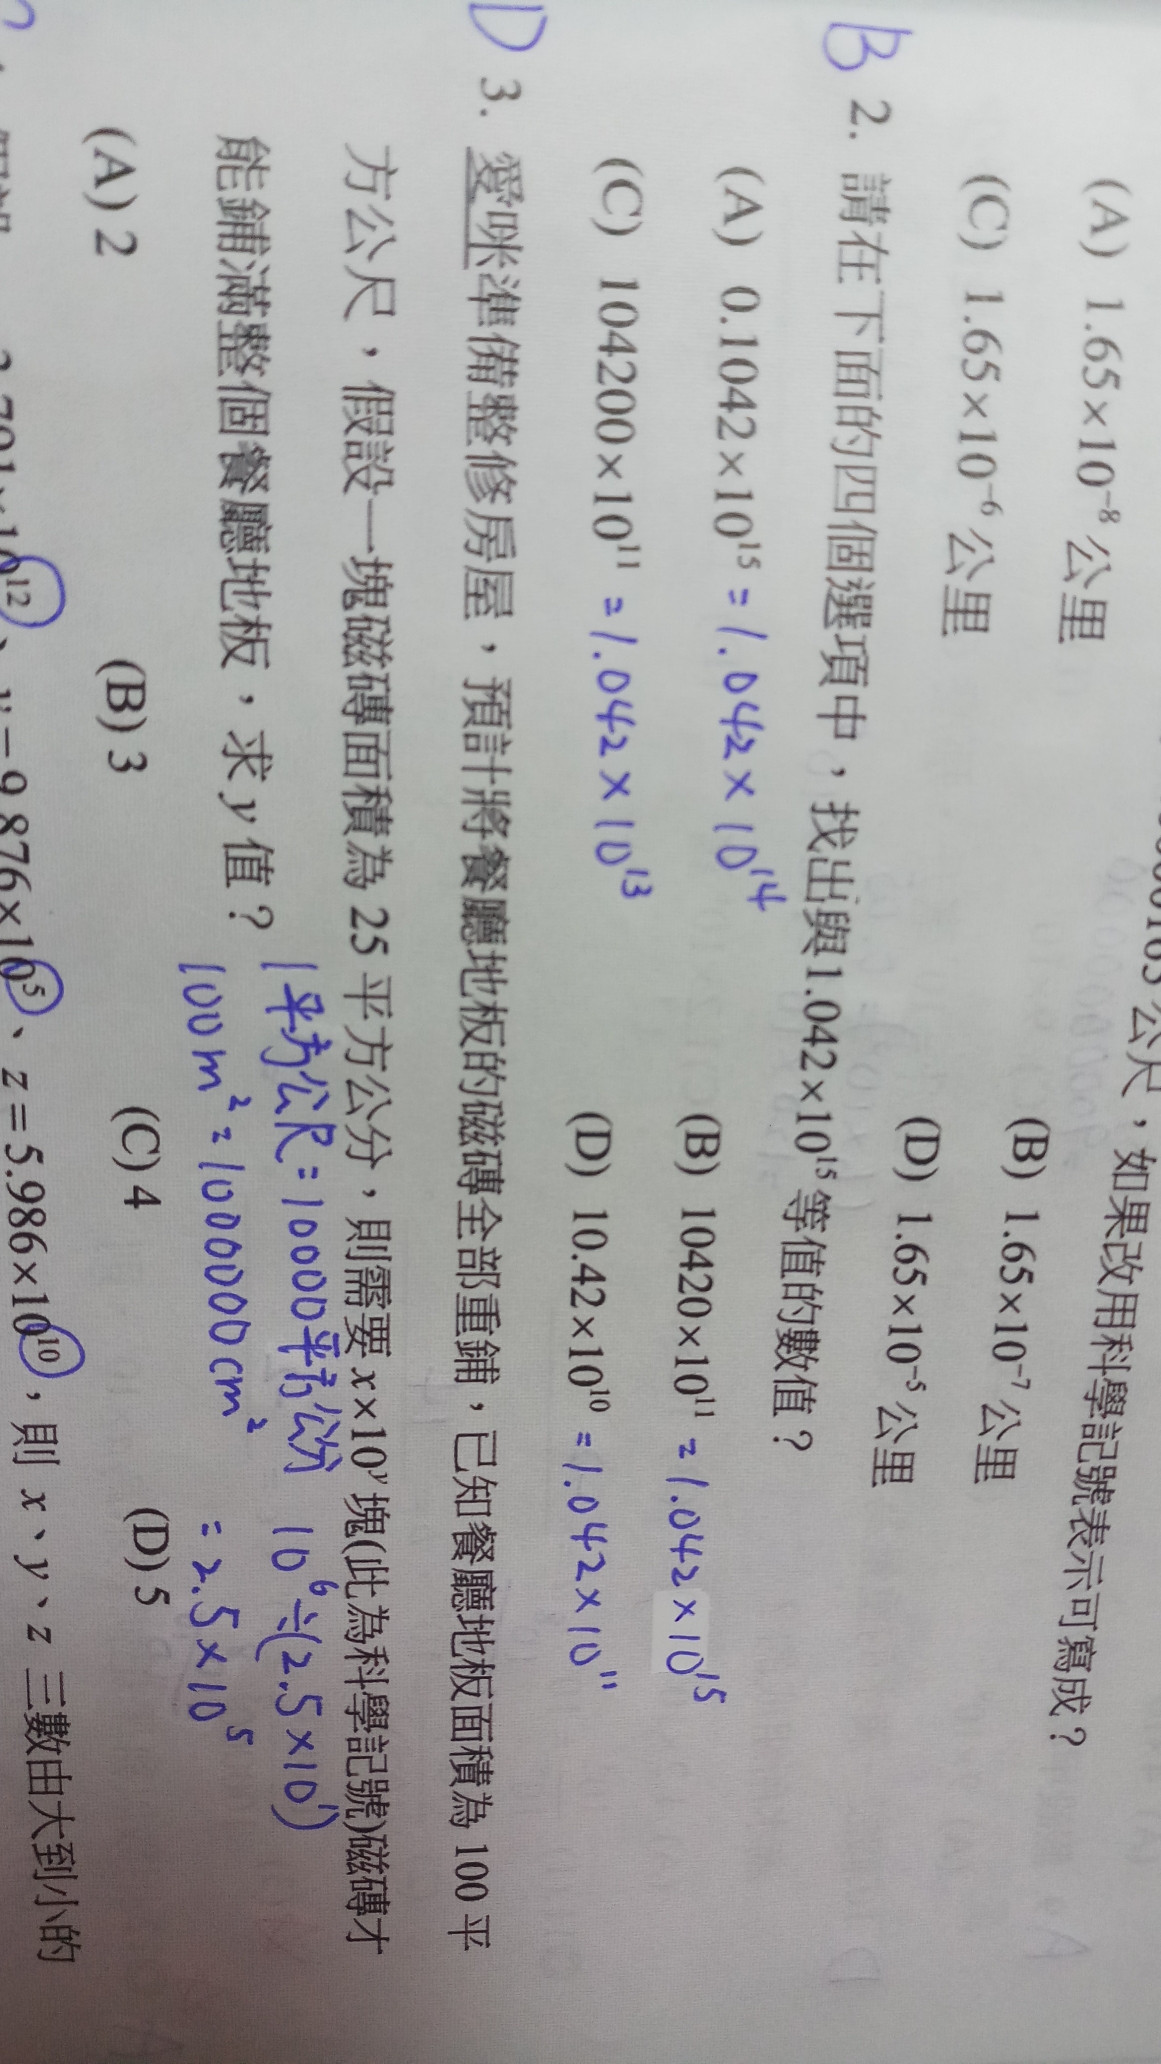 公尺，如果改用科學記號表示可寫成？
(A) 1.65×10⁻⁸公里 (B) 1.65×10⁻⁷公里
(C) 1.65×10⁻⁶公里 (D) 1.65×10⁻⁵公里
B 2. 請在下面的四個選項中，找出與1.042×10¹⁵等值的數值？
(A) 0.1042×10¹⁵ =1.042×10¹⁴ (B) 10420×10¹¹ =1.042×10¹⁵
(C) 104200×10¹¹ =1.042×10¹³ (D) 10.42×10¹⁰ =1.042×10¹¹
D 3. 愛咪準備整修房屋，預計將餐廳地板的磁磚全部重鋪，已知餐廳地板面積為100平
方公尺，假設一塊磁磚面積為25平方公分，則需要x×10ʸ塊(此為科學記號)磁磚才
能鋪滿整個餐廳地板，求y值？
1平方公尺=10000平方公分 10⁶÷(2.5×10¹)
100m²=1000000cm² =2.5×10⁵
(A) 2 (B) 3 (C) 4 (D) 5
y=9.876×10⁵、z=5.986×10¹⁰，則 x、y、z 三數由大到小的